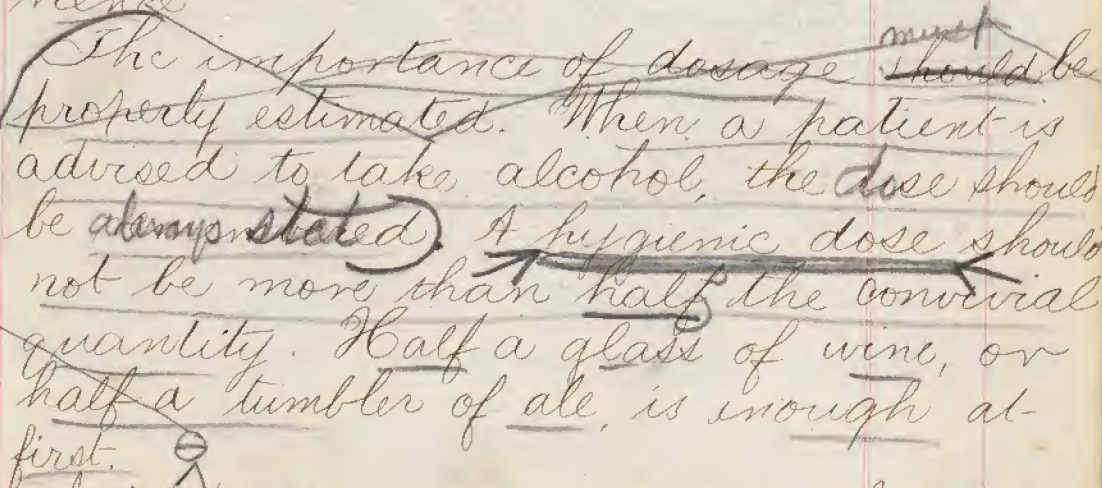 must
The importance of dosage should be
properly estimated. When a patient is
advised to take alcohol, the dose should
be always stated. A hygienic dose should
not be more than half the convivial
quantity. Half a glass of wine, or
half a tumbler of ale, is enough at
first.